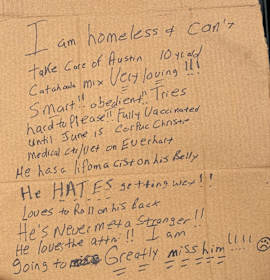 I am homeless & can't
take care of Austin 10 yr old
Catahoula mix Very loving !!!
Smart!! obedient!! Tries
hard to Please!! Fully Vaccinated
until June 15 Corpus Christi
medical ctr/vet on Everhart
He has a lipoma cist on his Belly
He HATES getting wet!!
Loves to Roll on his Back
He's Never met a Stranger!!
He loves the attn!! I am
going to Greatly miss him!!!!